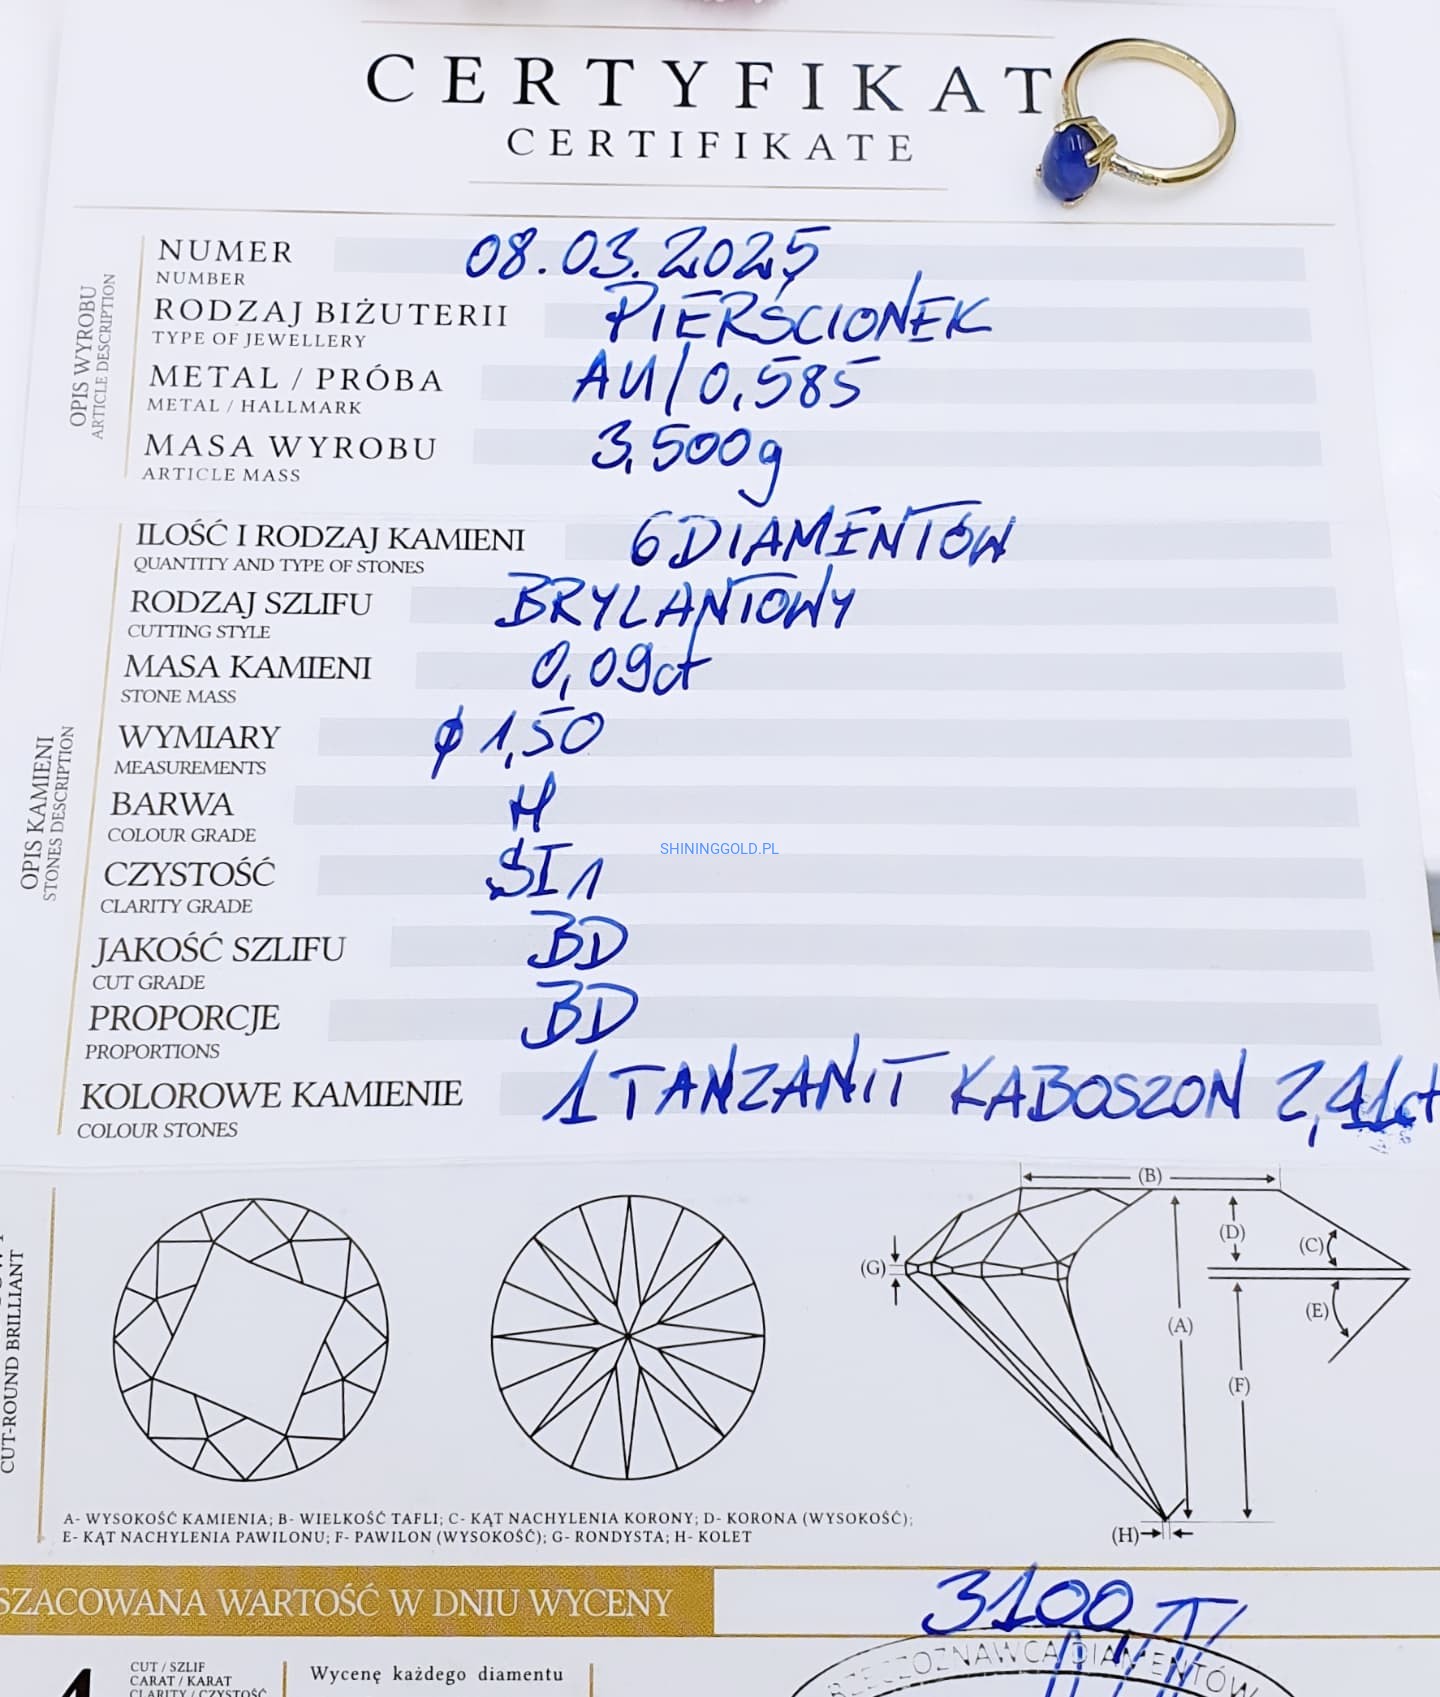 CERTYFIKAT
CERTIFIKATE
OPIS WYROBU
ARTICLE DESCRIPTION
NUMER 08.03.2025
NUMBER
RODZAJ BIŻUTERII PIERŚCIONEK
TYPE OF JEWELLERY
METAL / PRÓBA AU/0,585
METAL / HALLMARK
MASA WYROBU 3,500g
ARTICLE MASS
OPIS KAMIENI
STONES DESCRIPTION
ILOŚĆ I RODZAJ KAMIENI 6 DIAMENTÓW
QUANTITY AND TYPE OF STONES
RODZAJ SZLIFU BRYLANTOWY
CUTTING STYLE
MASA KAMIENI 0,09ct
STONE MASS
WYMIARY ϕ 1,50
MEASUREMENTS
BARWA H
COLOUR GRADE
SHININGGOLD.PL
CZYSTOŚĆ SI1
CLARITY GRADE
JAKOŚĆ SZLIFU BD
CUT GRADE
PROPORCJE BD
PROPORTIONS
KOLOROWE KAMIENIE 1 TANZANIT KABOSZON 2,41ct
COLOUR STONES
CUT-ROUND BRILLIANT
(B)
(D)
(C)
(G)
(E)
(A)
(F)
(H)
A- WYSOKOŚĆ KAMIENIA; B- WIELKOŚĆ TAFLI; C- KĄT NACHYLENIA KORONY; D- KORONA (WYSOKOŚĆ);
E- KĄT NACHYLENIA PAWILONU; F- PAWILON (WYSOKOŚĆ); G- RONDYSTA; H- KOLET
SZACOWANA WARTOŚĆ W DNIU WYCENY 3100
RZECZOZNAWCA DIAMENTÓW
4
CUT / SZLIF
CARAT / KARAT
CLARITY / CZYSTOŚĆ
Wycenę każdego diamentu